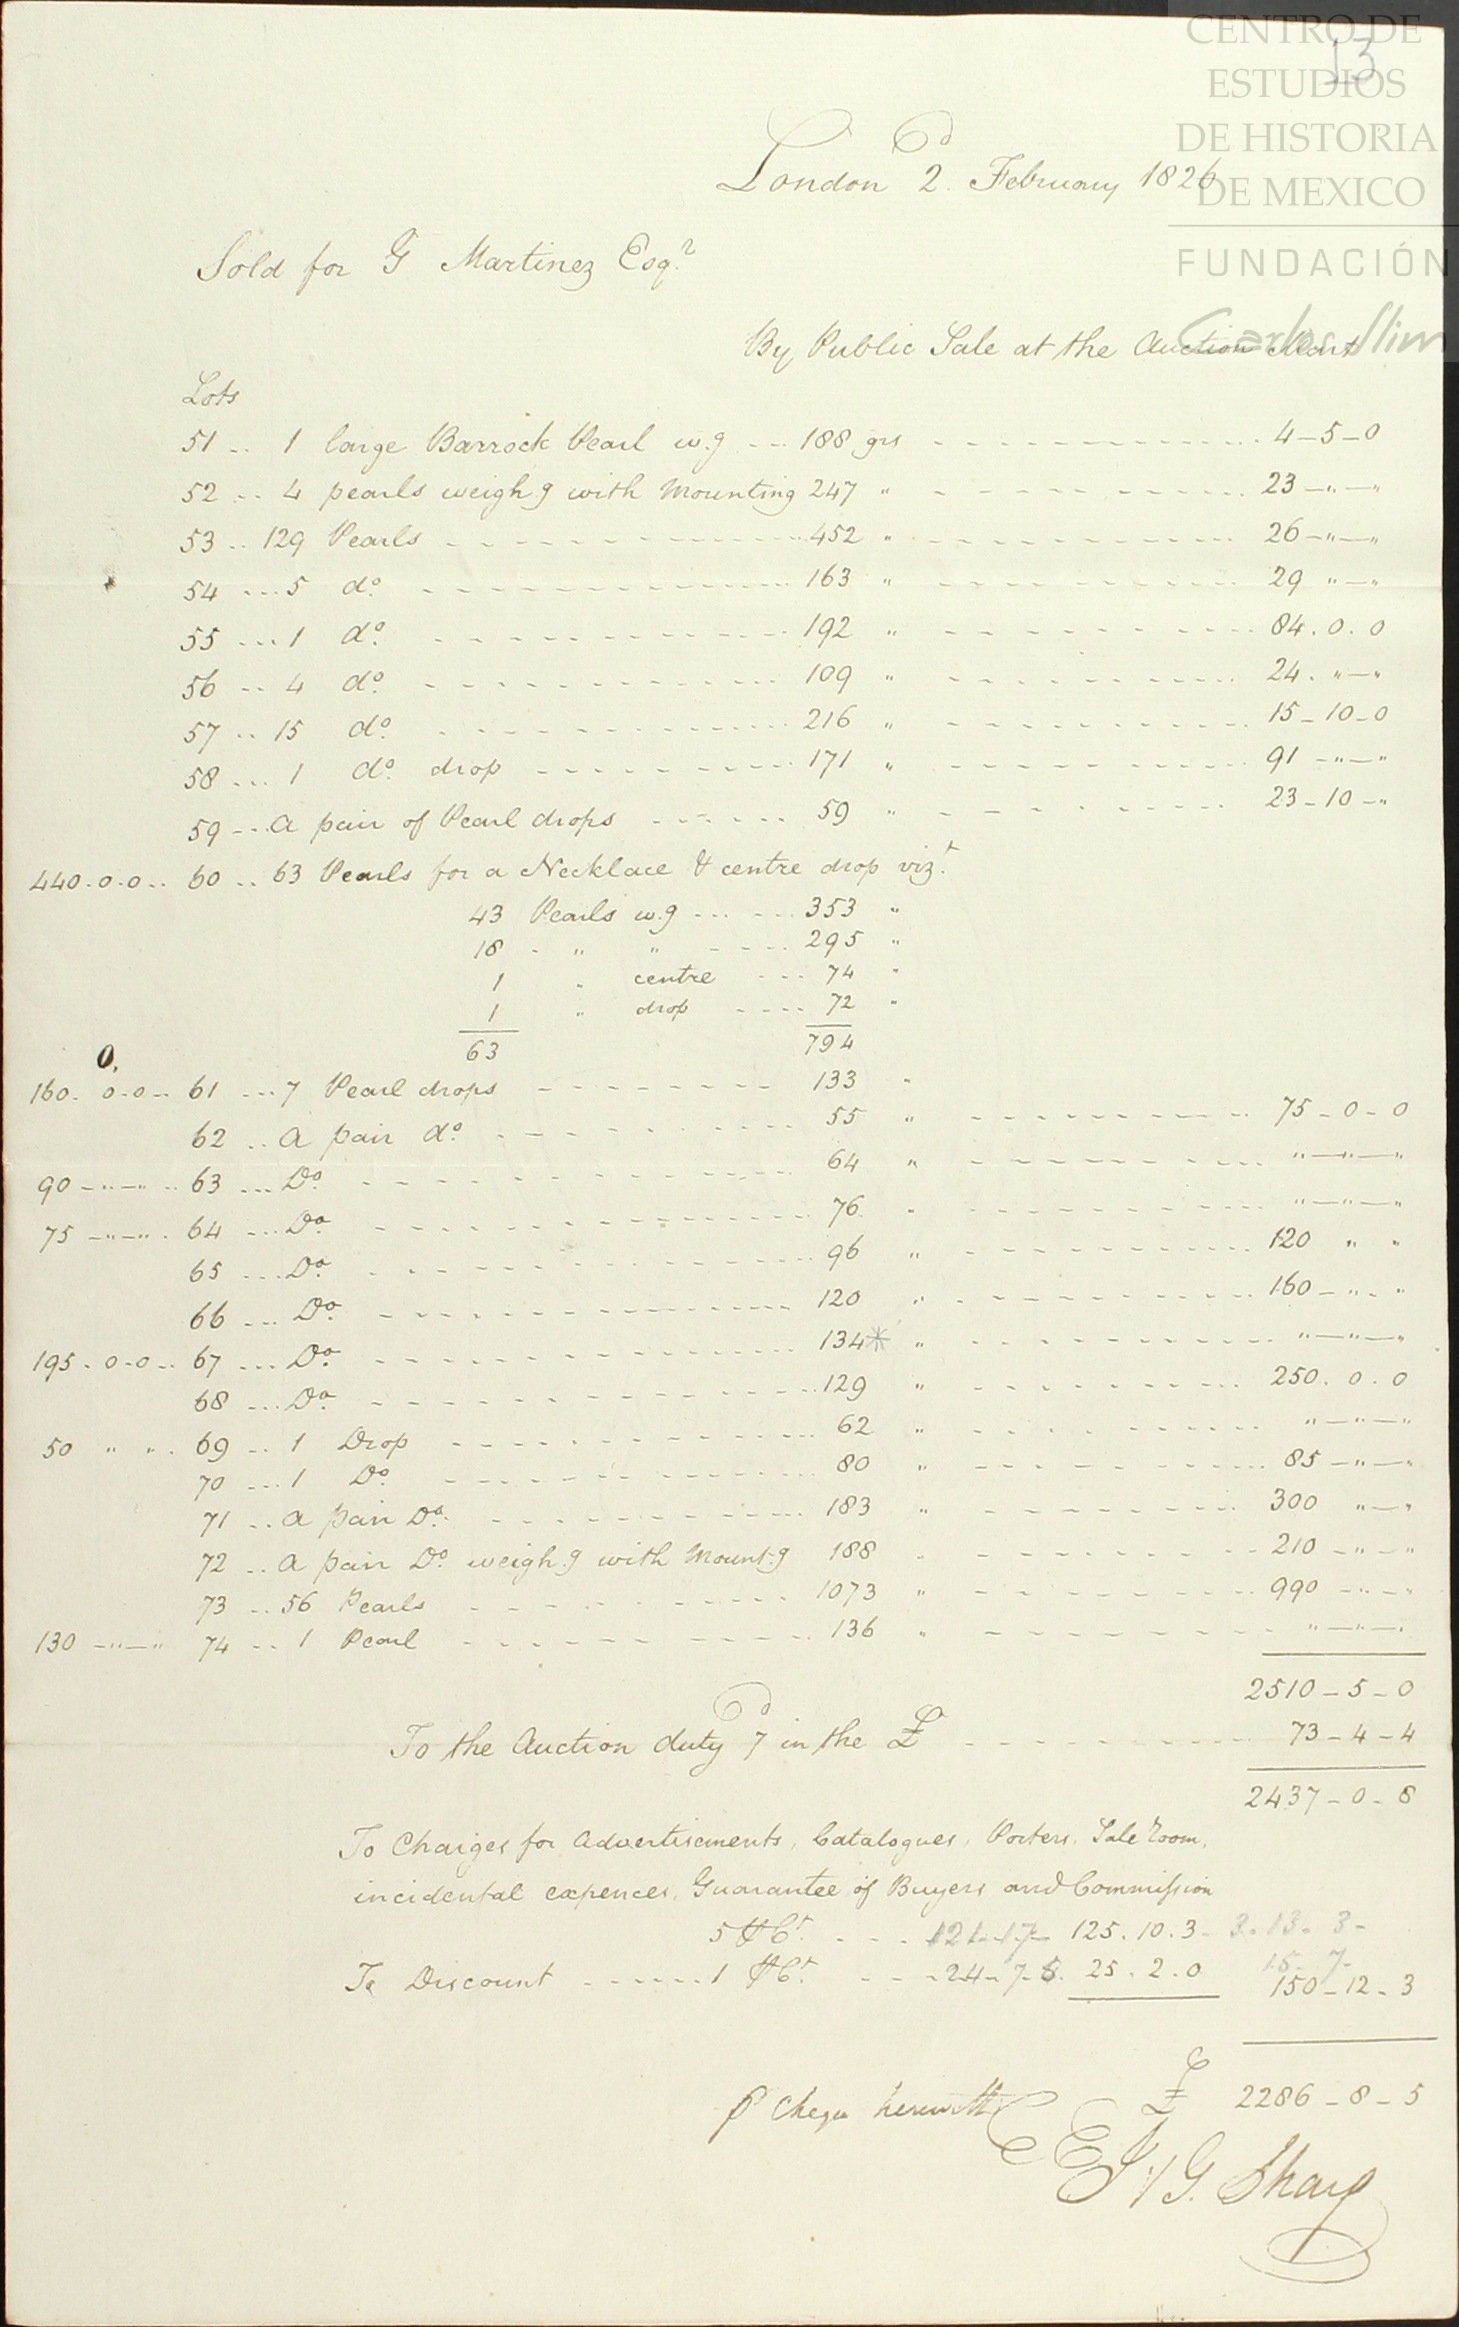 CENTRO DE
ESTUDIOS
DE HISTORIA
DE MEXICO
FUNDACIÓN
Carlos Slim
13
London 2.d February 1826
Sold for G Martinez Esqr
By Public Sale at the Auction Mart
Lots
51 .. 1 large Barrock Pearl w.g --- 188 grs - - - 4-5-0
52 .. 4 pearls weigh.g with Mounting 247 " - - - 23-"-"
53 .. 129 Pearls - - - 452 " - - - 26-"-"
54 ... 5 do. - - - 163 " - - - 29 "-"
55 ... 1 do. - - - 192 " - - - 84.0.0
56 .. 4 do. - - - 109 " - - - 24. "-"
57 .. 15 do. - - - 216 " - - - 15-10-0
58 ... 1 do. drop - - - 171 " - - - 91 -"-"
59 ... A pair of Pearl drops - - - 59 " - - - 23-10-"
440.0.0.. 60 .. 63 Pearls for a Necklace & centre drop vizt.
43 Pearls w.g - - - 353 "
18 - " " - - - 295 "
1 " centre - - - 74 "
1 " drop - - - 72 "
63 794
0.
160. 0.0.. 61 ... 7 Pearl drops - - - 133 "
62 .. A pair do. - - - 55 " - - - 75-0-0
90-"-" .. 63 ... Do. - - - 64 " - - - "-"-"
75-"-" . 64 ... Do. - - - 76 " - - - "-"-"
65 ... Do. - - - 96 " - - - 120 " "
66 ... Do. - - - 120 " - - - 160-".-"
195.0.0.. 67 ... Do. - - - 134* " - - - "-"-"
68 ... Do. - - - 129 " - - - 250.0.0
50 " " . 69 .. 1 Drop - - - 62 " - - - "-"-"
70 ... 1 Do. - - - 80 " - - - 85-"-"
71 .. A pair Do. - - - 183 " - - - 300 "-"
72 .. A pair Do. weigh.g with Mount.g 188 " - - - 210-"-"
73 .. 56 Pearls - - - 1073 " - - - 990-"-"
130-"-" 74 .. 1 Pearl - - - 136 " - - - "-"-"
2510-5-0
To the Auction duty 7d in the £ - - - 73-4-4
2437-0-8
To Charges for Advertisements, Catalogues, Porters, Sale Room,
incidental expences, Guarantee of Buyers and Commission
5 ⅌ Ct. - - - 121-17- 125.10.3 - 3.13.3-
To Discount - - - 1 ⅌ Ct. - - - 24-7-5. 25.2.0 15.7-
150-12-3
⅌ Cheque herewith £ 2286-8-5
E J & G. Sharp